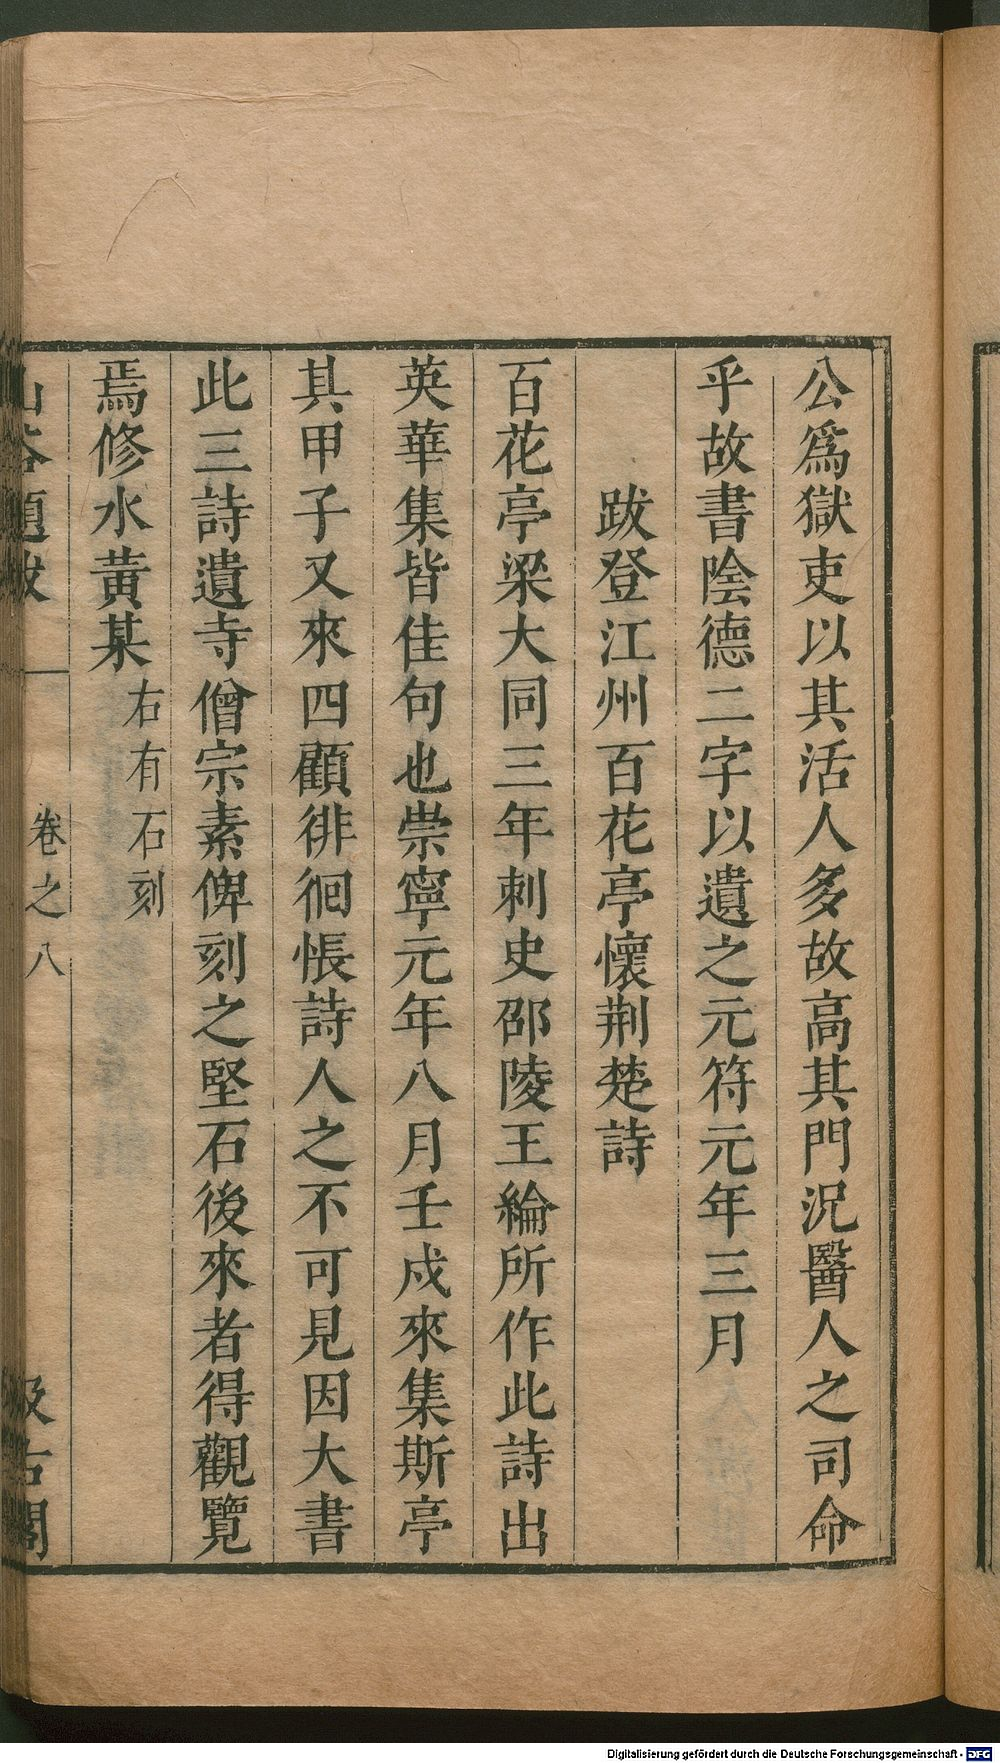 公爲獄吏以其活人多故高其門況醫人之司命
乎故書陰德二字以遺之元符元年三月
跋登江州百花亭懷荆楚詩
百花亭梁大同三年刺史邵陵王綸所作此詩出
英華集皆佳句也崇寧元年八月壬戍來集斯亭
其甲子又來四顧徘徊悵詩人之不可見因大書
此三詩遺寺僧宗素俾刻之堅石後來者得觀覽
焉修水黃某 右有石刻
山谷題跋 卷之八 汲古閣
Digitalisierung gefördert durch die Deutsche Forschungsgemeinschaft - DFG